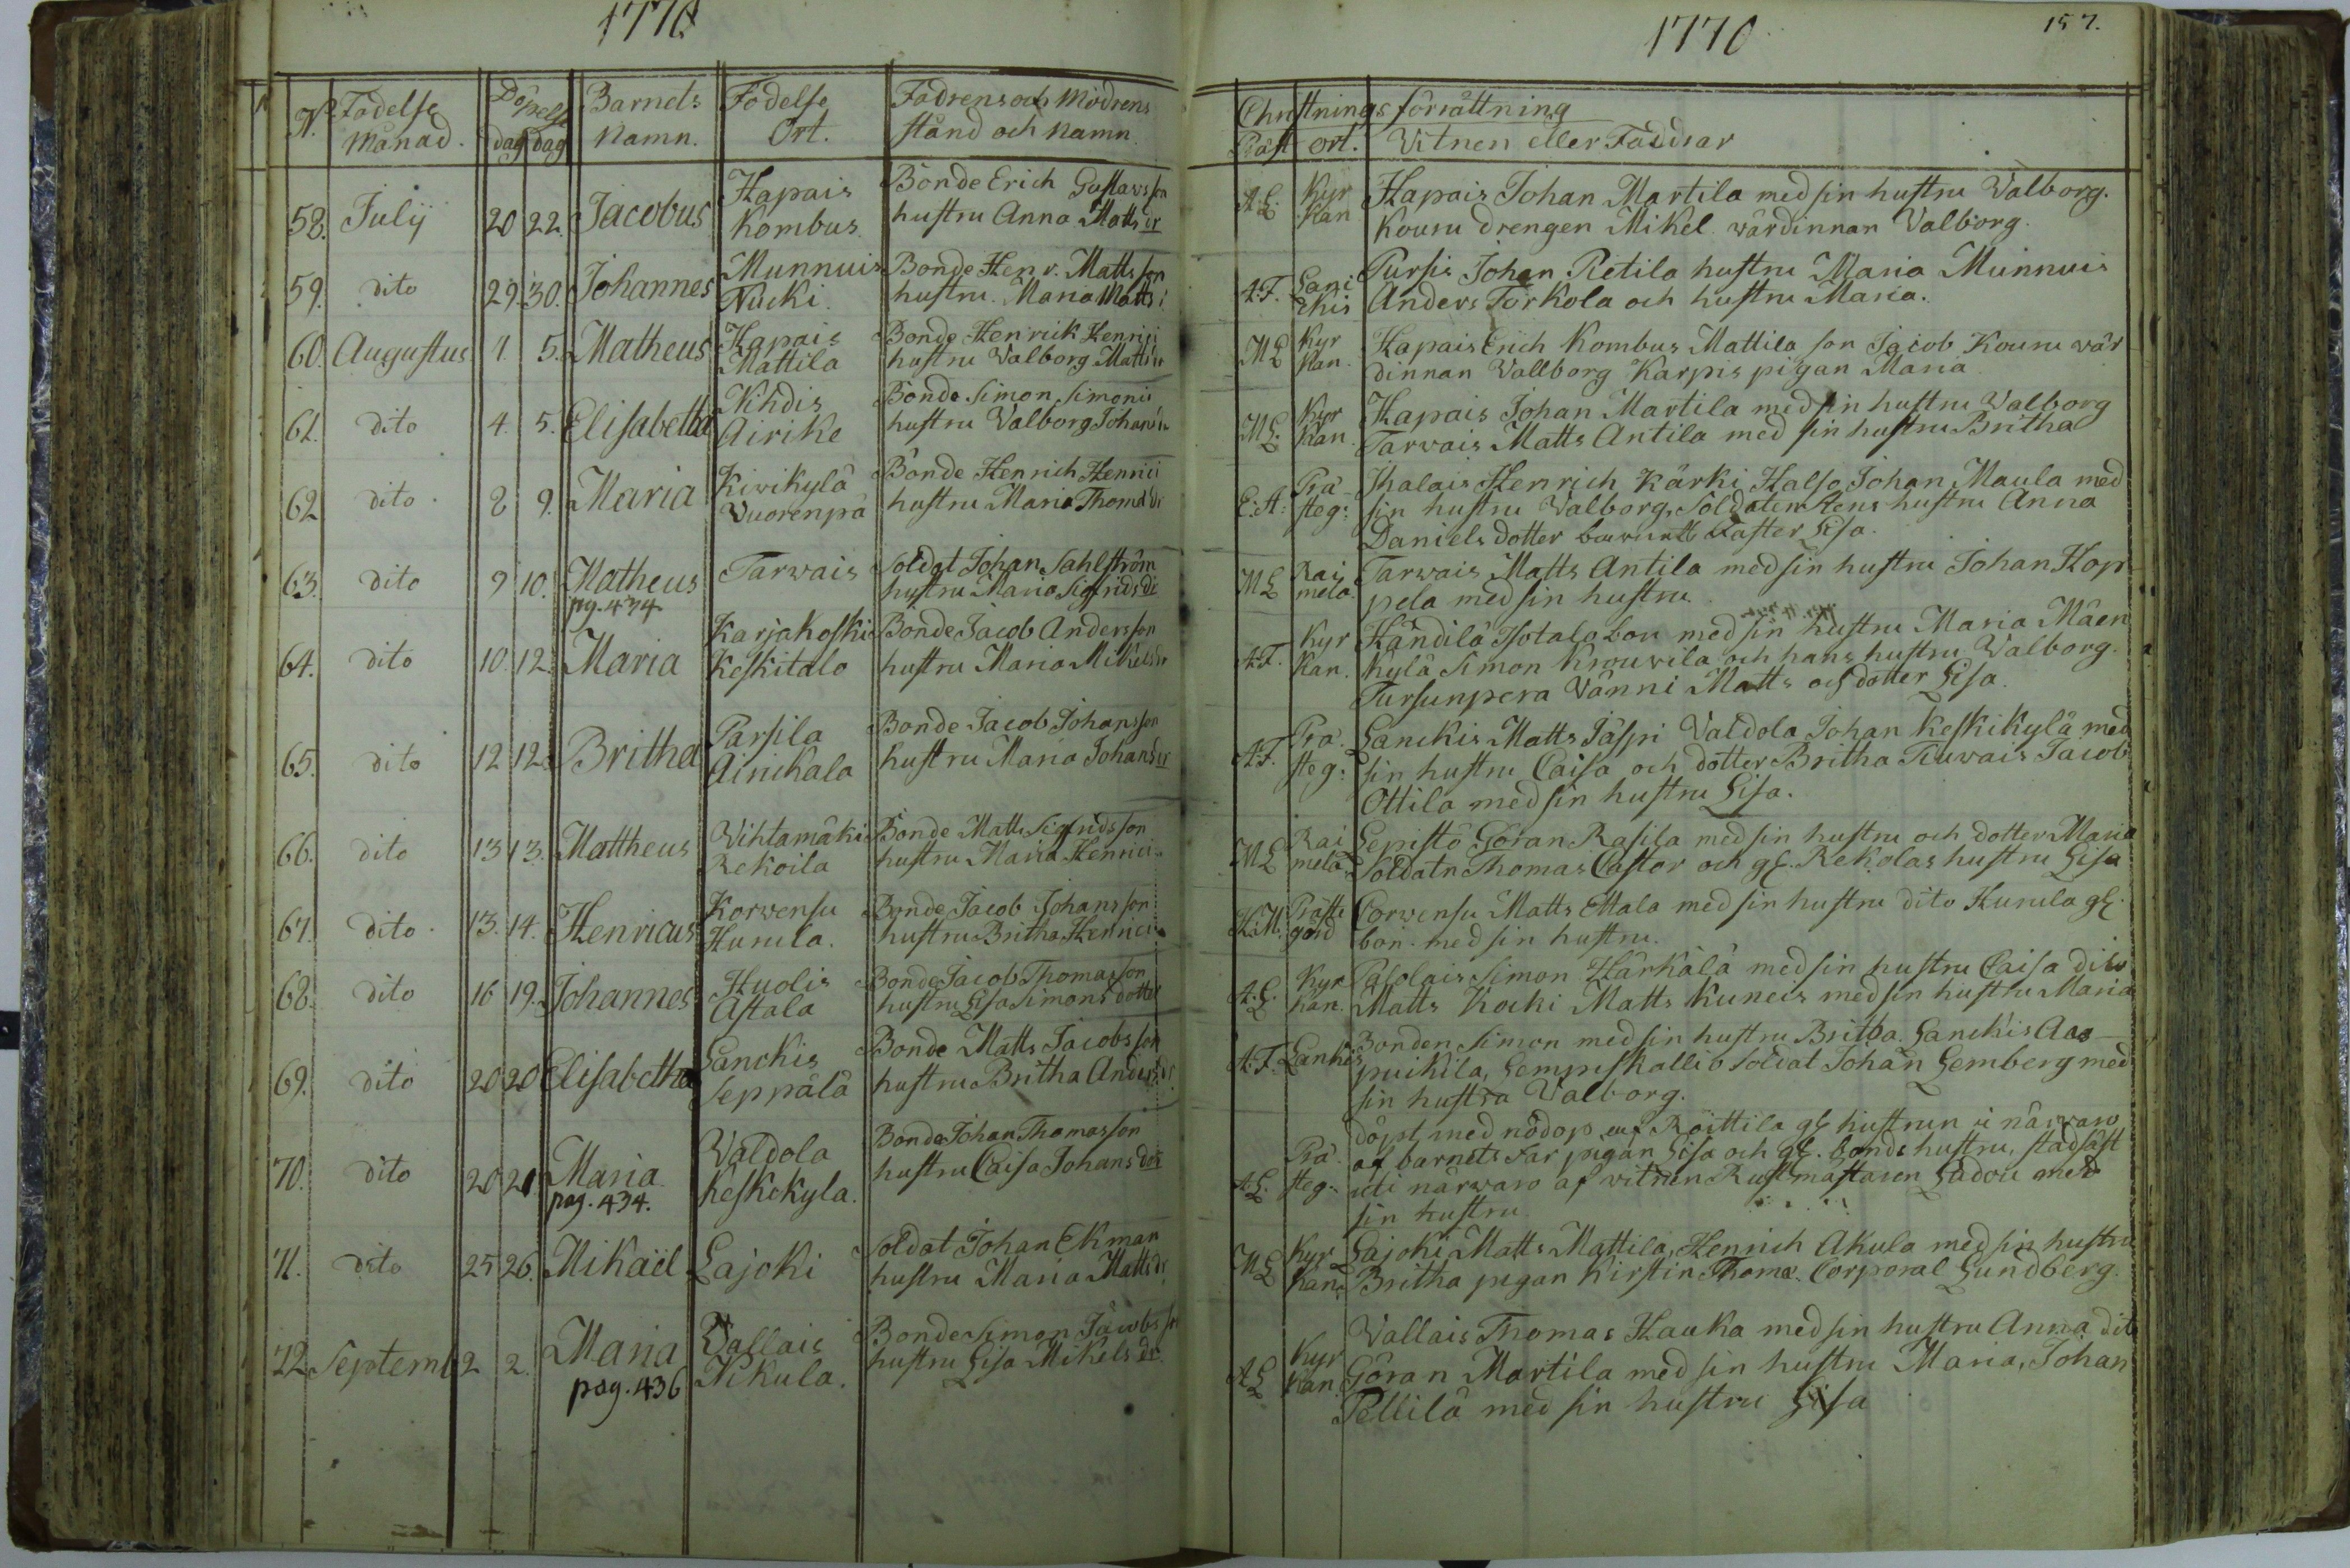 1770
N:o Födelse Månad. Döpelse dag dag Barnets Namn. Födelse Ort. Fadrens och Modrens stånd och namn
58. Julij 20 22. Jacobus Hapais Kombus. Bonde Erich Gustavsson
hustru Anna Matts dr
59. dito 29. 30. Johannes Munnuis Nucki. Bonde Henr. Mattsson
hustru Maria Matts
60. Augustus 1. 5. Matheus Hapais Mattila Bonde Henrik Henrici
hustru Valborg Matts dr
61. dito 4. 5. Elisabetha Kihdis Airike Bonde Simon Simonis
hustru Valborg Johan
62 dito 8 9. Maria Kivikylä Vuorenpä Bonde Henrich Henrici
hustru Maria Thomæ dr
63. dito 9 10. Matheus pg. 434 Tarwais Soldat Johan Sahlström
hustru Maria Sigfrids dr
64. dito 10. 12. Maria Karjakoski Keskitalo Bonde Jacob Andersson
hustru Maria Mikels dr
65. dito 12 12. Britha Parsila Ainikala Bonde Jacob Johansson
hustru Maria Johans dr
66. dito 13 13. Mattheus Vihtamäki Rekoila Bonde Matts Sigfridsson
hustru Maria Henrici
67. dito 13. 14. Henricus Korvensu Hurula. Bonde Jacob Johansson
hustru Britha Henrici
68. dito 16 19. Johannes Huolis Astala Bonde Jacob Thomasson
hustru Lisa Simons dotter
69. dito 20 20 Elisabetha Lanckis Seppälä Bonde Matts Jacobsson
hustru Britha Anders dr
70. dito 20 21. Maria pag. 434. Valdola Keskikyla. Bonde Johan Thomasson
hustru Caisa Johans dr
71. dito 25 26. Mikaël Lajoki Soldat Johan Ekman
hustru Maria Matts dr
72. Septemb 2 2. Maria pag. 436 Vallais Nikula. Bonde Simon Jacobsson
hustru Lisa Mikels dr
1770
157.
Christnings förrättning
Präst ort. Vitnen eller Faddrar
A.L. Kyrkan Hapais Johan Martila med sin hustru Valborg.
Kouru drengen Mikel wärdinnan Valborg.
A.F. Lanckis Pursis Johan Retila hustru Maria Munnuis
Anders Torkola och hustru Maria.
ML Kyrkan. Hapais Erich Kombus Mattila son Jacob Kouru wär
dinnan Vallborg Karpis pigan Maria
ML. Kyrkan. Hapais Johan Martila med sin hustru Valborg
Tarwais Matts Antila med sin hustru Britha
E.A: Prästeg: Ihalais Henrich Kärki Halso Johan Maula med
sin hustru Valborg, Soldaten Rens hustru Anna
Danielsdotter Lisa.
ML Raimela. Tarwais Matts Antila med sin hustru Johan Hop
pela med sin hustru.
A.F. Kyrkan. Händilä Isotalo bon med sin hustru Maria Mäen
kylä Simon Krouvila och hans hustru Valborg.
Tursunpera Vänni Matts och dotter Lisa.
A.F. Prästeg: Lanckis Matts Jäspi Valdola Johan Keskikylä med
sin hustru Caisa och dotter Britha Jacob
Ottila med sin hustru Lisa.
ML Raimela Lepistö Göran Rasila med sin hustru och dotter Maria
Soldatn Thomas Castor och gl. Rekolas hustru Lisa
H.M. Prästegård Corwensu Matts Ettala med sin hustru dito Hurula gl.
bon. med sin hustru.
A.L. Kyrkan. Pasolais Simon Härkälä med sin hustru Caisa dito
Matts Kocki Matts Kuneis med sin hustru Maria
A.F. Lankis Bonden Simon med sin hustru Britha. Lanckis Aas
puikila, Lempiskallio soldat Johan Lemberg med
sin hustru Valborg.
A.L. Prästeg: döpt med nödop, af Roittila gl hustrun i närwaro
af barnets Far pigan Lisa och gl. bonds hustru, stadfäst
uti närwaro af vitnen Rustmästaren med
sin hustru
ML Kyrkan: Lajoki Matts Mattila, Henrich Akula med sin hustru
Britha pigan Kirstin Thomæ. Corporal Lundberg.
AL Kyrkan. Vallais Thomas Hauka med sin hustru Anna dito
Göran Martila med sin hustru Maria, Johan
Pellilä med sin hustru Lisa